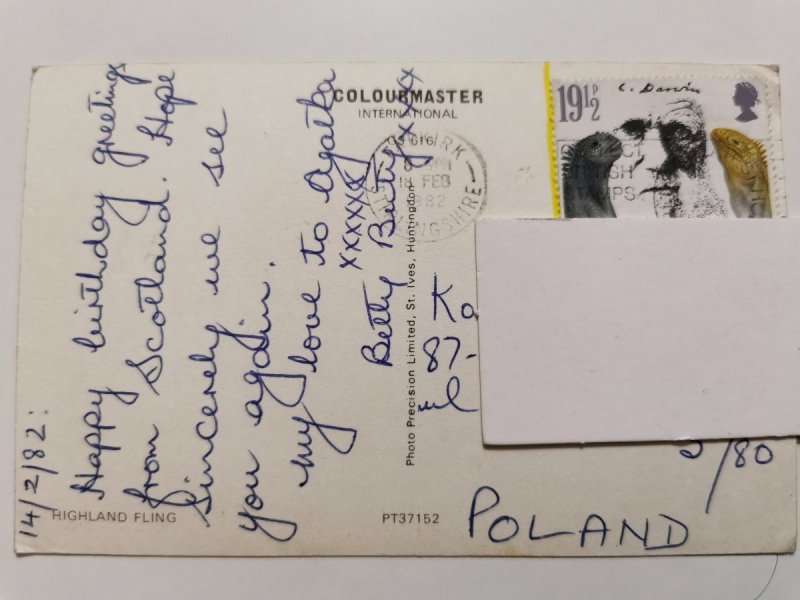 14/2/82:
Happy birthday greetings
from Scotland. Hope
Sincerely we see
you again.
My love to Agatka
xxxxxx
Betty Betty xxxx
COLOURMASTER
INTERNATIONAL
18 FEB
1982
19½P
C. Darwin
Photo Precision Limited, St. Ives, Huntingdon
87-
ul
/80
POLAND
HIGHLAND FLING
PT37152